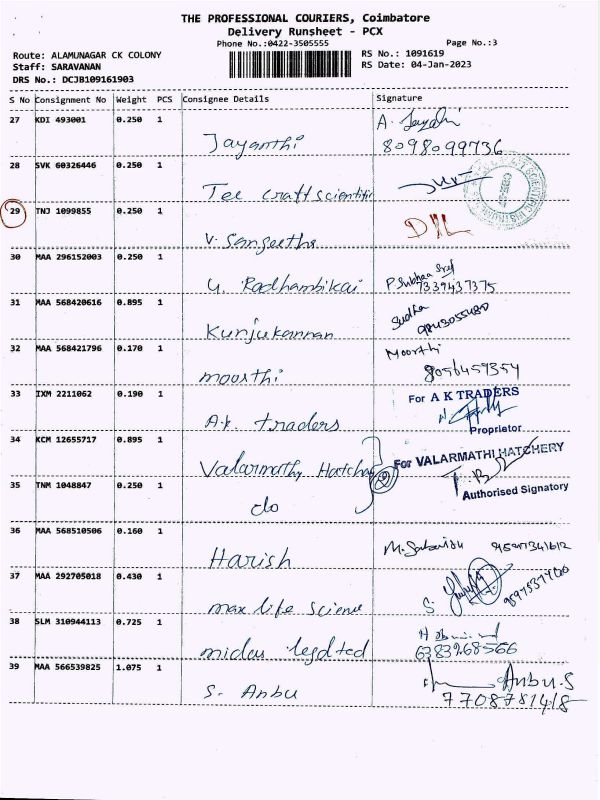 THE PROFESSIONAL COURIERS, Coimbatore
Delivery Runsheet - PCX
Phone No.:0422-3505555
Page No.:3
Route: ALAMUNAGAR CK COLONY
RS No.: 1091619
Staff: SARAVANAN
RS Date: 04-Jan-2023
DRS No.: DCJB109161903
S No Consignment No Weight PCS Consignee Details Signature
27 KDI 493001 0.250 1
Jayanthi
8098099736
28 SVK 60326446 0.250 1
Tee craft scientific
29 TNJ 1099855 0.250 1
V. Sangeetha
30 MAA 296152003 0.250 1
G. Radhambikai
7339437375
31 MAA 568420616 0.895 1
Kunjukannan
Sudha
32 MAA 568421796 0.170 1
Moorthi
moorthi
8056459354
33 IXM 2211062 0.190 1
For A K TRADERS
A.k. traders
Proprietor
34 KCM 12655717 0.895 1
Valarmathy Hatchary
For VALARMATHI HATCHERY
35 TNM 1048847 0.250 1
do
Authorised Signatory
36 MAA 568510506 0.160 1
Harish
37 MAA 292705018 0.430 1
max life science
38 SLM 310944113 0.725 1
6383968566
39 MAA 566539825 1.075 1
S. Anbu
Anbu.S
7708781418